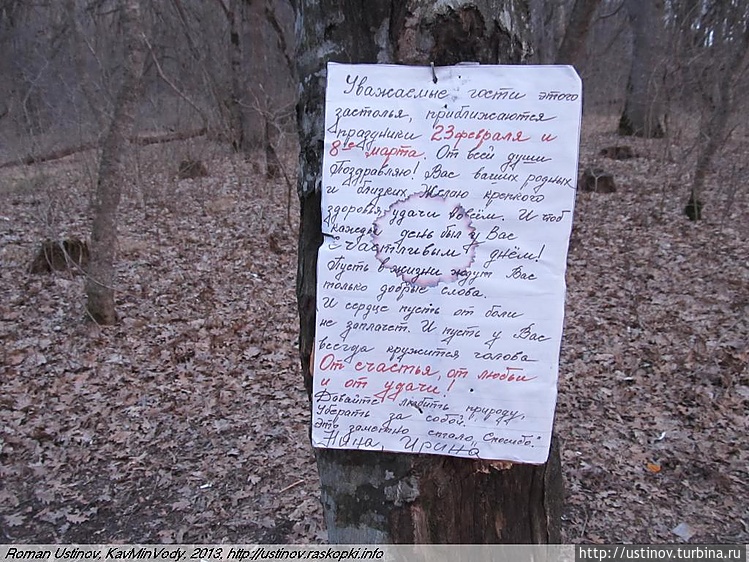 Уважаемые гости этого
застолья, приближаются
праздники 23 февраля и
8ое марта. От всей души
Поздравляю! Вас ваших родных
и близких. Желаю крепкого
здоровья, удачи во всём. И чтоб
каждый день был у Вас
счастливым днём!
Пусть в жизни ждут Вас
только добрые слова.
И сердце пусть от боли
не заплачет. И пусть у Вас
всегда кружится голова
От счастья, от любви
и от удачи!
Давайте любить природу,
Убирать за собой.
Это заметно стало, Спасибо.
Нина, Ирина
Roman Ustinov, KavMinVody, 2013, http://ustinov.raskopki.info
http://ustinov.turbina.ru/